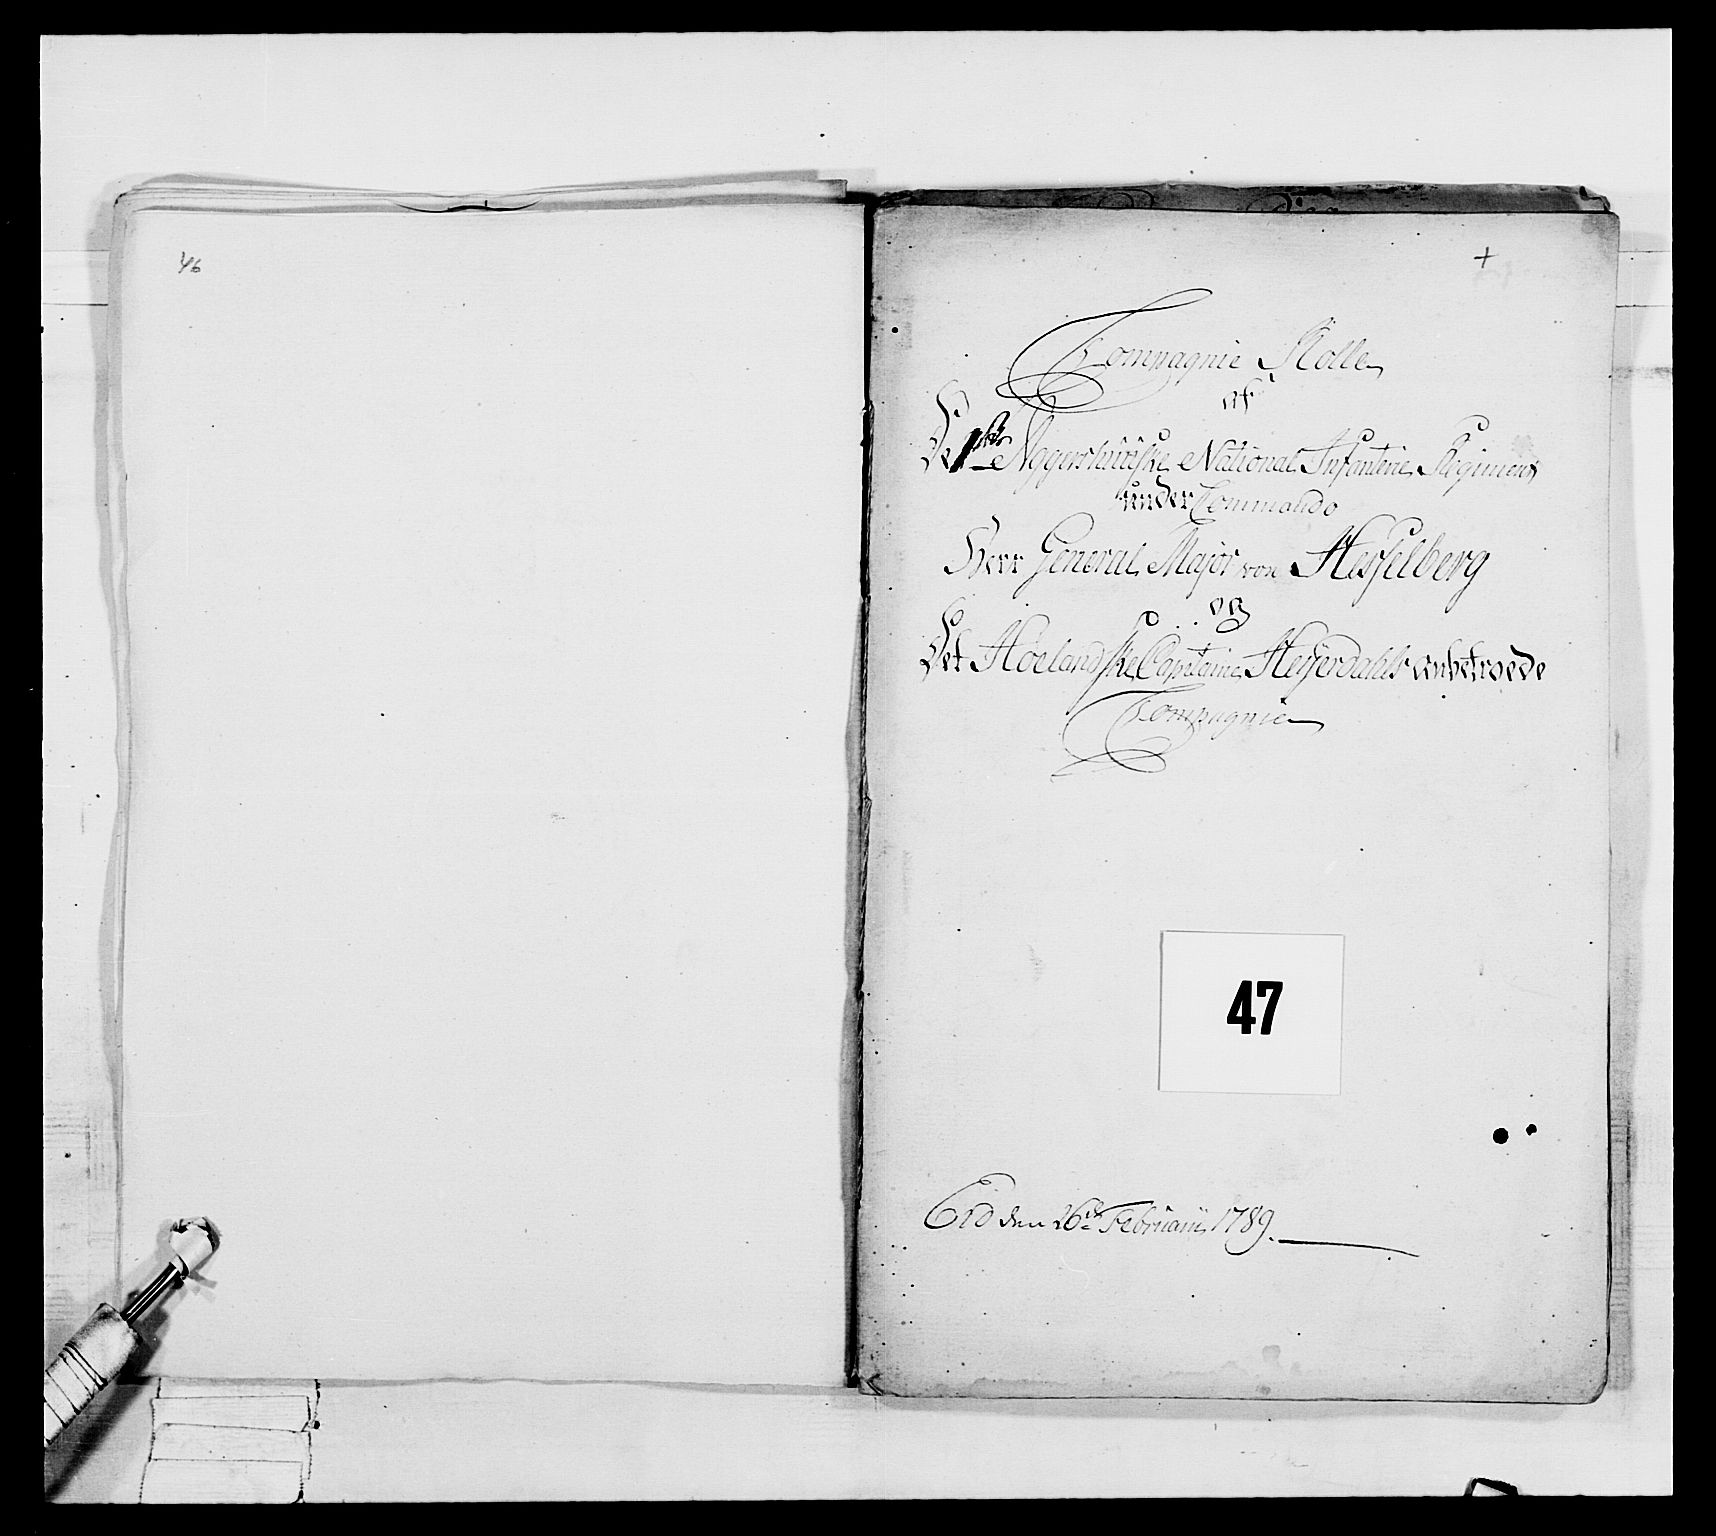 46
+
Compagnie Rolle
af
Det 1ste Aggershuusiske National Infanterie Regiment
under Commando
Herr General Major von Hesselberg
og
Det Hoelandske Capitaine Heyerdahls anbetroede
Compagnie
47
Eid den 26de Februarii 1789.